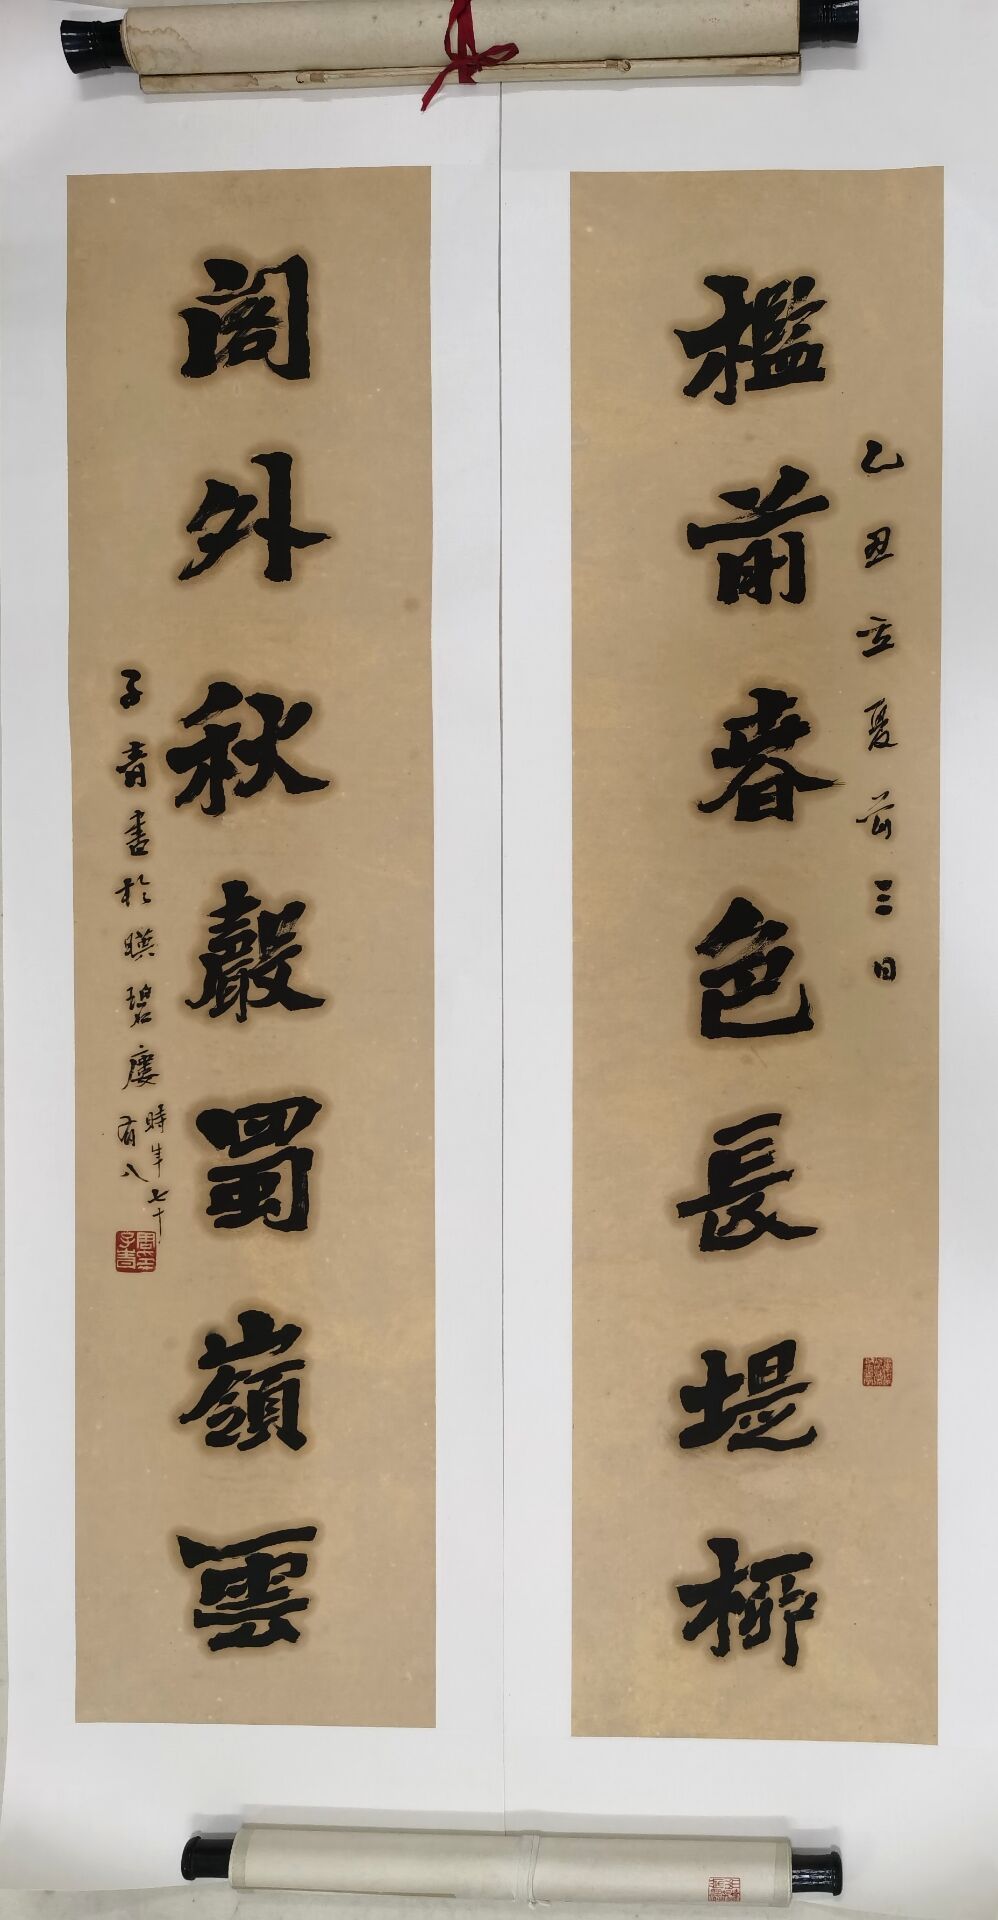 乙丑立夏前三日
檻前春色長堤柳
閣外秋聲蜀嶺雲
子青書於暎碧廔時年七十有八